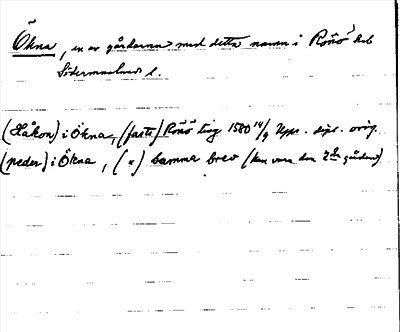 Ökna, en av gårdarna med detta namn i Rönö hd
Södermanlands l.
(Håkon) i Ökna, (faste) Rönö ting 1580 14/9 Upps. dipl. orig.
(peder) i Ökna, ( " ) Samma brev (kan vara den 2 a gården)